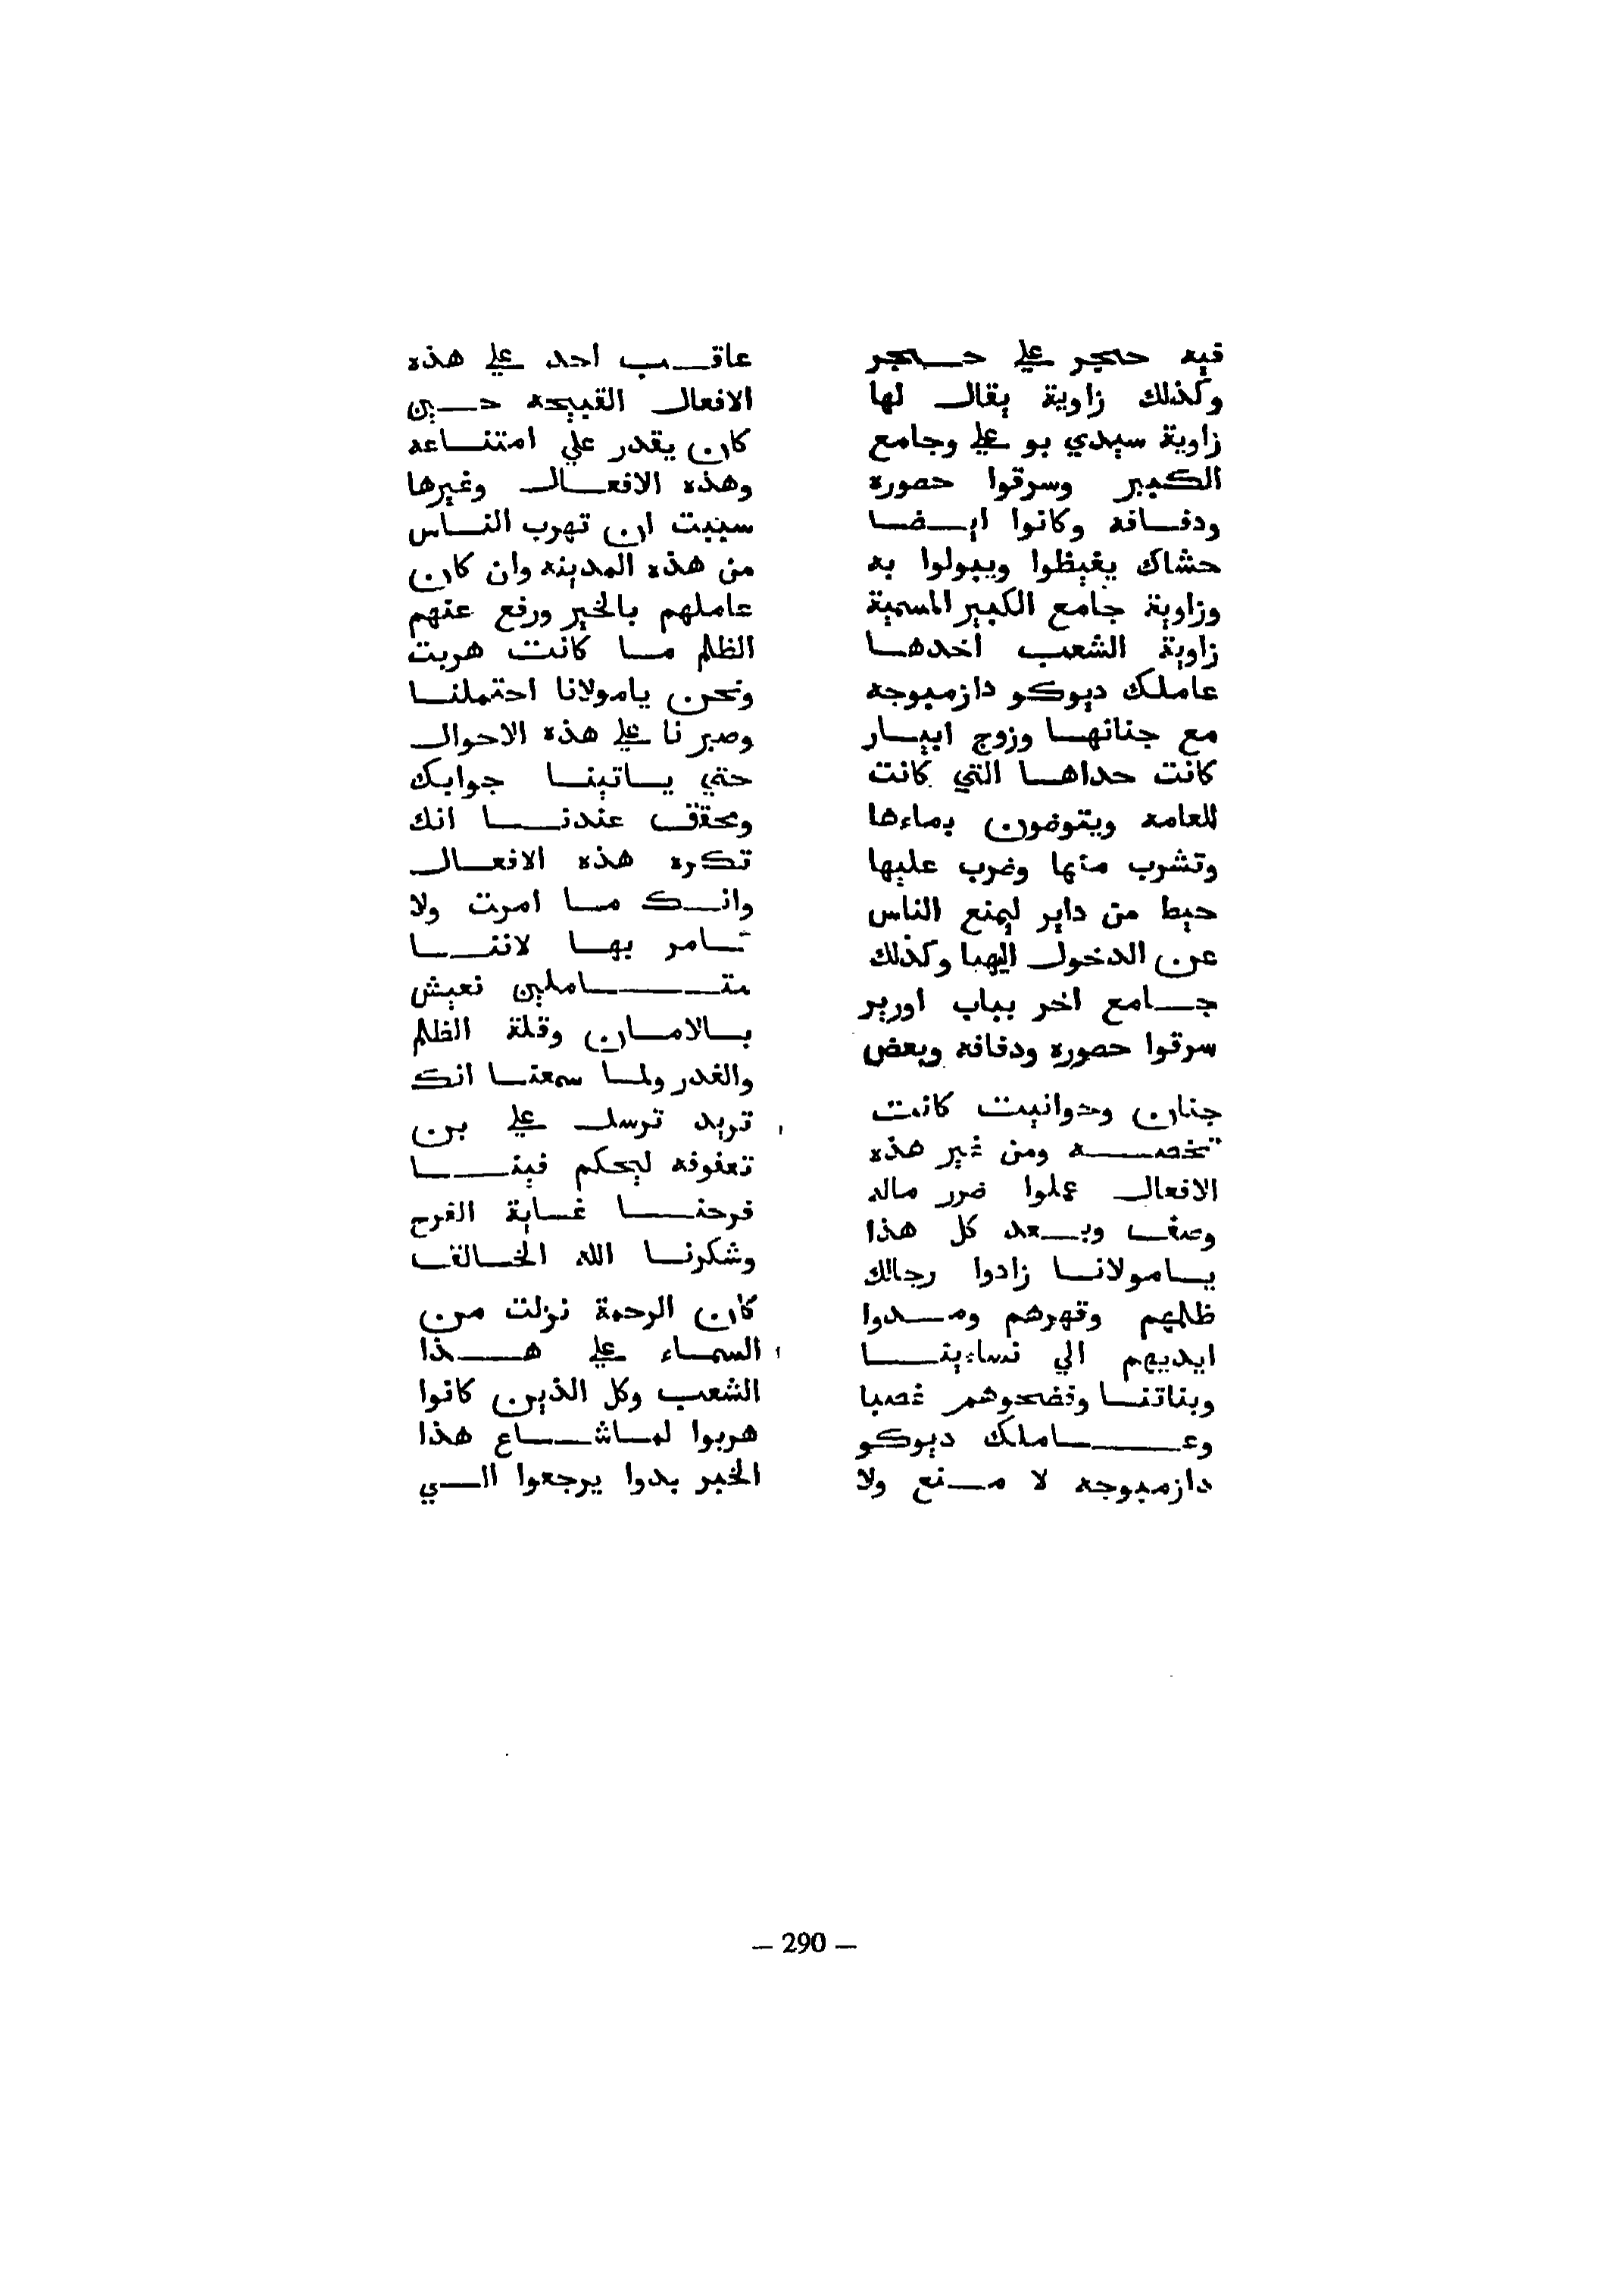 فيه حجر علي حجر
وكذلك زاوية يقال لها
زاوية سيدي بو علي وجامع
الكبير وسرقوا حصوره
ودفافه وكانوا ايضا
حشاك يغيظوا ويبولوا به
وزاوية جامع الكبير المسمية
زاوية الشعب اخدها
عاملك ديوكو دازمبوجه
مع جنانها وزوج ابيار
كانت حداها التي كانت
للعامه ويتوضون بماءها
وتشرب منها وضرب عليها
حيط من داير ليمنع الناس
عن الدخول اليها وكذلك
جامع اخر بباب اورير
سرقوا حصوره ودفافه وبعض
جنان وحوانيت كانت
تخصه ومن غير هذه
الافعال عملوا ضرر ماله
وصف وبعد كل هذا
يامولانا زادوا رجالك
ظلمهم وقهرهم ومدوا
ايديهم الي نساءينا
وبناتنا وفضحوهم غصبا
وعاملك ديوكو
دازمبوجه لا منع ولا
عاقب احد علي هذه
الافعال القبيحه حين
كان يقدر علي امتناعه
وهذه الافعال وغيرها
سببت ان تهرب الناس
من هذه المدينه وان كان
عاملهم بالخير ورفع عنهم
الظلم ما كانت هربت
ونحن يامولانا احتملنا
وصبرنا علي هذه الاحوال
حتي ياتينا جوابك
ومحقق عندنا انك
تكره هذه الافعال
وانك ما امرت ولا
تامر بها لاننا
متاملين نعيش
بالامان وقلة الظلم
والغدر ولما سمعنا انك
تريد ترسل علي بن
تعفوفه ليحكم فينا
فرحنا غاية الفرح
وشكرنا الله الخالق
كأن الرحمة نزلت من
السماء علي هذا
الشعب وكل الذين كانوا
هربوا لماشاع هذا
الخبر بدوا يرجعوا الي
– 290 –